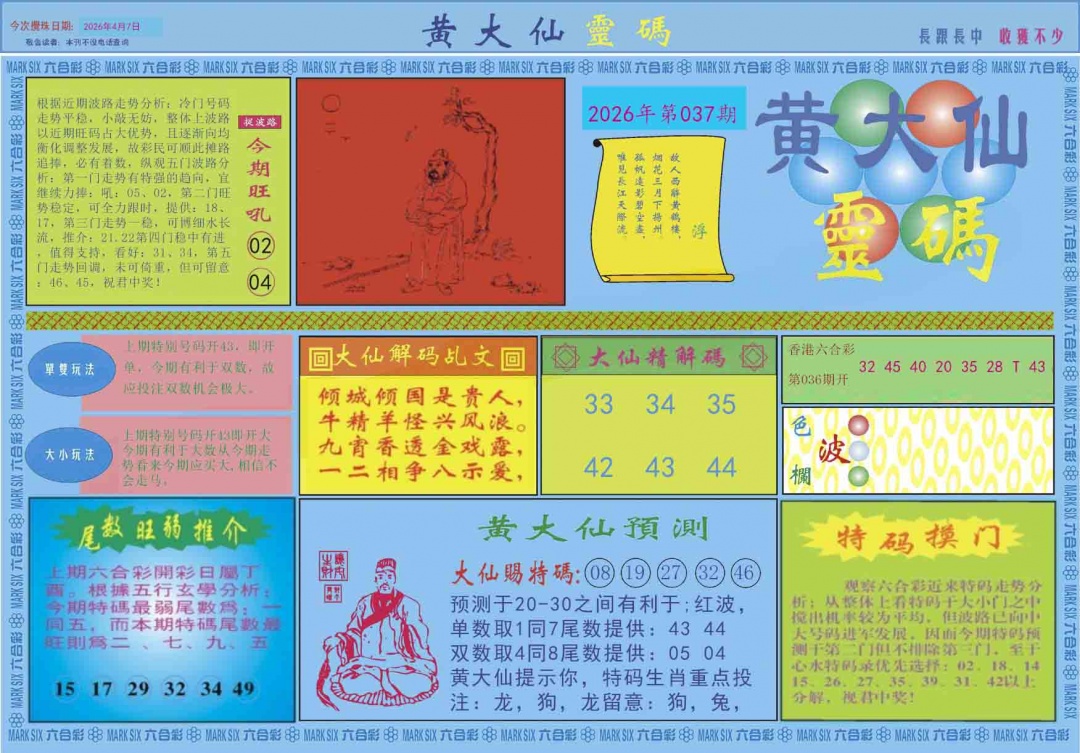 今次攪珠日期: 2026年4月7日
敬告读者: 本刊不设电话查询
黄大仙靈碼
長跟長中 收獲不少
根据近期波路走势分析: 冷门号码
走势平稳, 小敲无妨, 整体上波路
以近期旺码占大优势, 且逐渐向均
衡化调整发展, 故彩民可顺此摊路
追捧, 必有着数, 纵观五门波路分
析: 第一门走势有特强的趋向, 宜
继续力捧; 吼: 05、02, 第二门旺
势稳定, 可全力跟时, 提供: 18、
17, 第三门走势一稳, 可博细水长
流, 推介: 21.22第四门稳中有进
, 值得支持, 看好: 31、34, 第五
门走势回调, 未可倚重, 但可留意
: 46、45, 祝君中奖!
捉波路
今期旺吼
02
04
2026年第037期
故人西辭黃鶴樓,
烟花三月下揚州
孤帆遠影碧空盡
唯見長江天際流
浮
黄大仙
靈碼
單雙玩法
上期特别号码开43, 即开
单, 今期有利于双数, 故
应投注双数机会极大。
大小玩法
上期特别号码开43即开大
今期有利于大数从今期走
势看来今期应买大,相信不
会走马。
大仙解码乩文
倾城倾国是贵人,
牛精羊怪兴风浪。
九宵香透金戏露,
一二相争八示爱,
大仙精解碼
33 34 35
42 43 44
香港六合彩
第036期开
32 45 40 20 35 28 T 43
色波欄
尾数旺弱推介
上期六合彩開彩日屬丁
酉。根據五行玄學分析;
今期特碼最弱尾數爲: 一
同五, 而本期特碼尾數最
旺則爲二、七、九、五
15 17 29 32 34 49
黄大仙預測
大仙賜特碼: 08 19 27 32 46
预测于20-30之间有利于;红波,
单数取1同7尾数提供: 43 44
双数取4同8尾数提供: 05 04
黄大仙提示你, 特码生肖重点投
注: 龙, 狗, 龙留意: 狗, 兔,
特码摸门
观察六合彩近来特码走势分
析; 从整体上看特码干大小门之中
搅出机率较为平均, 但波路已向中
大号码进军发展, 因而今期特码预
测于第二门但不排除第三门, 至于
心水特码录优先选择: 02、18、14
15、26、27、35、39、31、42以上
分解, 祝君中奖!
MARK SIX 六合彩